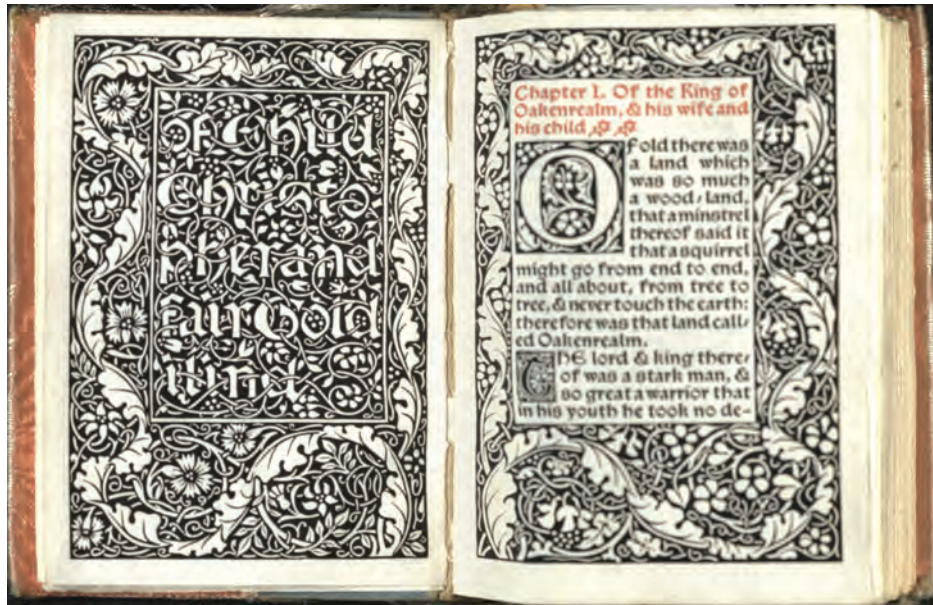 Of Child
Christo
pher and
fair Gold
ilind
Chapter I. Of the King of
Oakenrealm, & his wife and
his child
Of old there was
a land which
was so much
a wood-land,
that a minstrel
thereof said it
that a squirrel
might go from end to end,
and all about, from tree to
tree, & never touch the earth:
therefore was that land call-
ed Oakenrealm.
The lord & king there-
of was a stark man, &
so great a warrior that
in his youth he took no de-